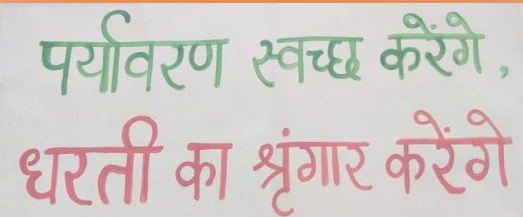 पर्यावरण स्वच्छ करेंगे,
धरती का श्रृंगार करेंगे